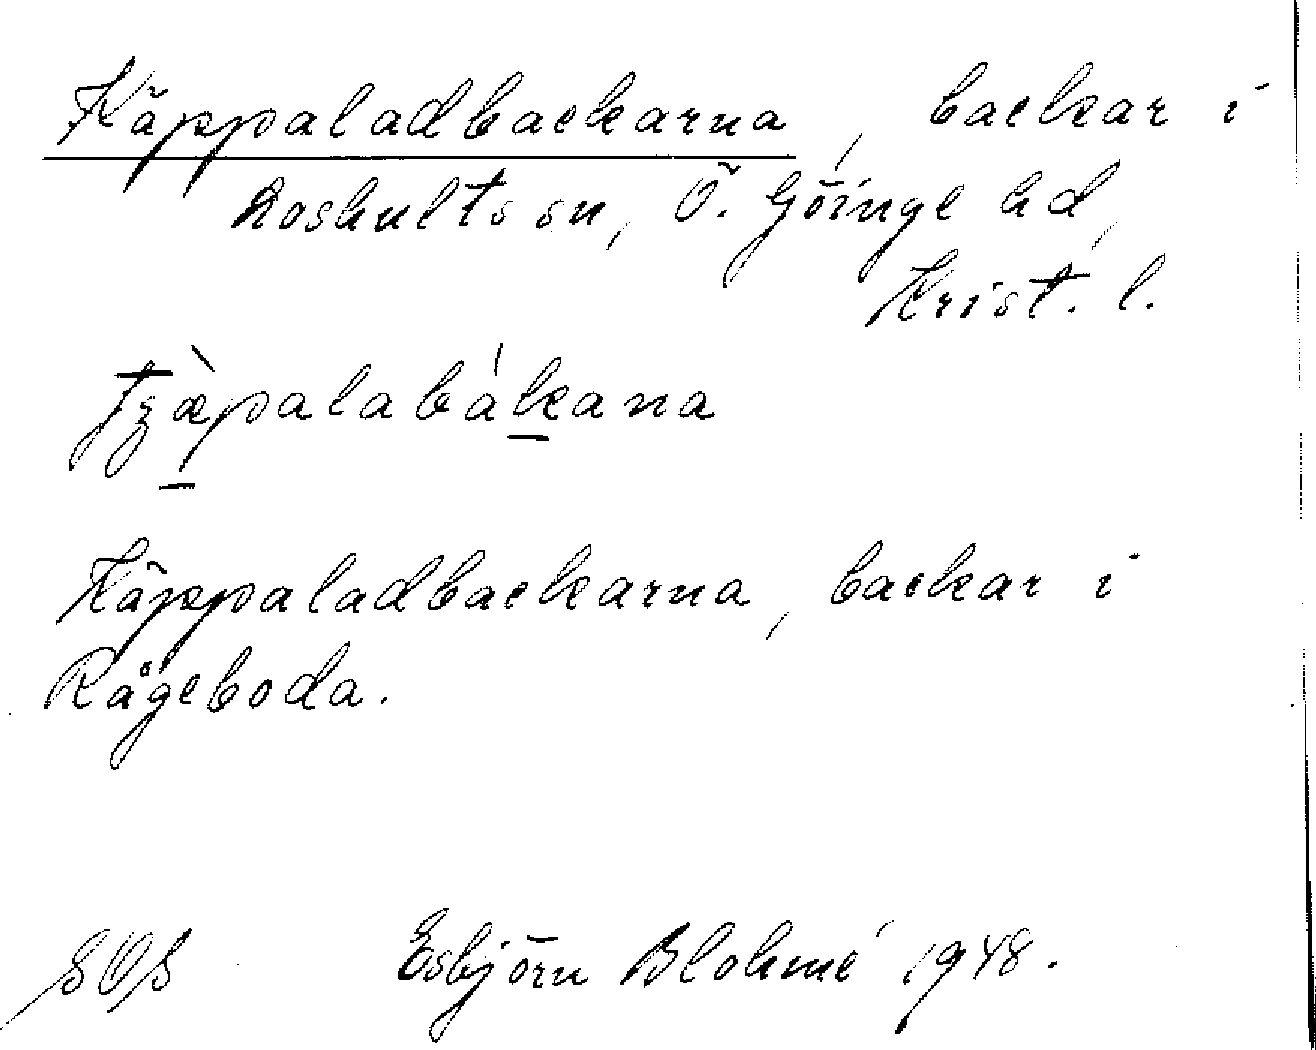 Käppaladbackarna, backar i
Loshults sn, Ö. Göinge hd,
Krist. l.
tʒæ̀palabákana
Käppaladbackarna, backar i
Rågeboda.
Esbjörn Blohmé 1948.